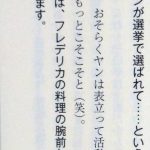 ンが選挙で選ばれて……とい
おそらくヤンは表立って活
もっとこそこそと(笑)。
は、フレデリカの料理の腕前
ます。